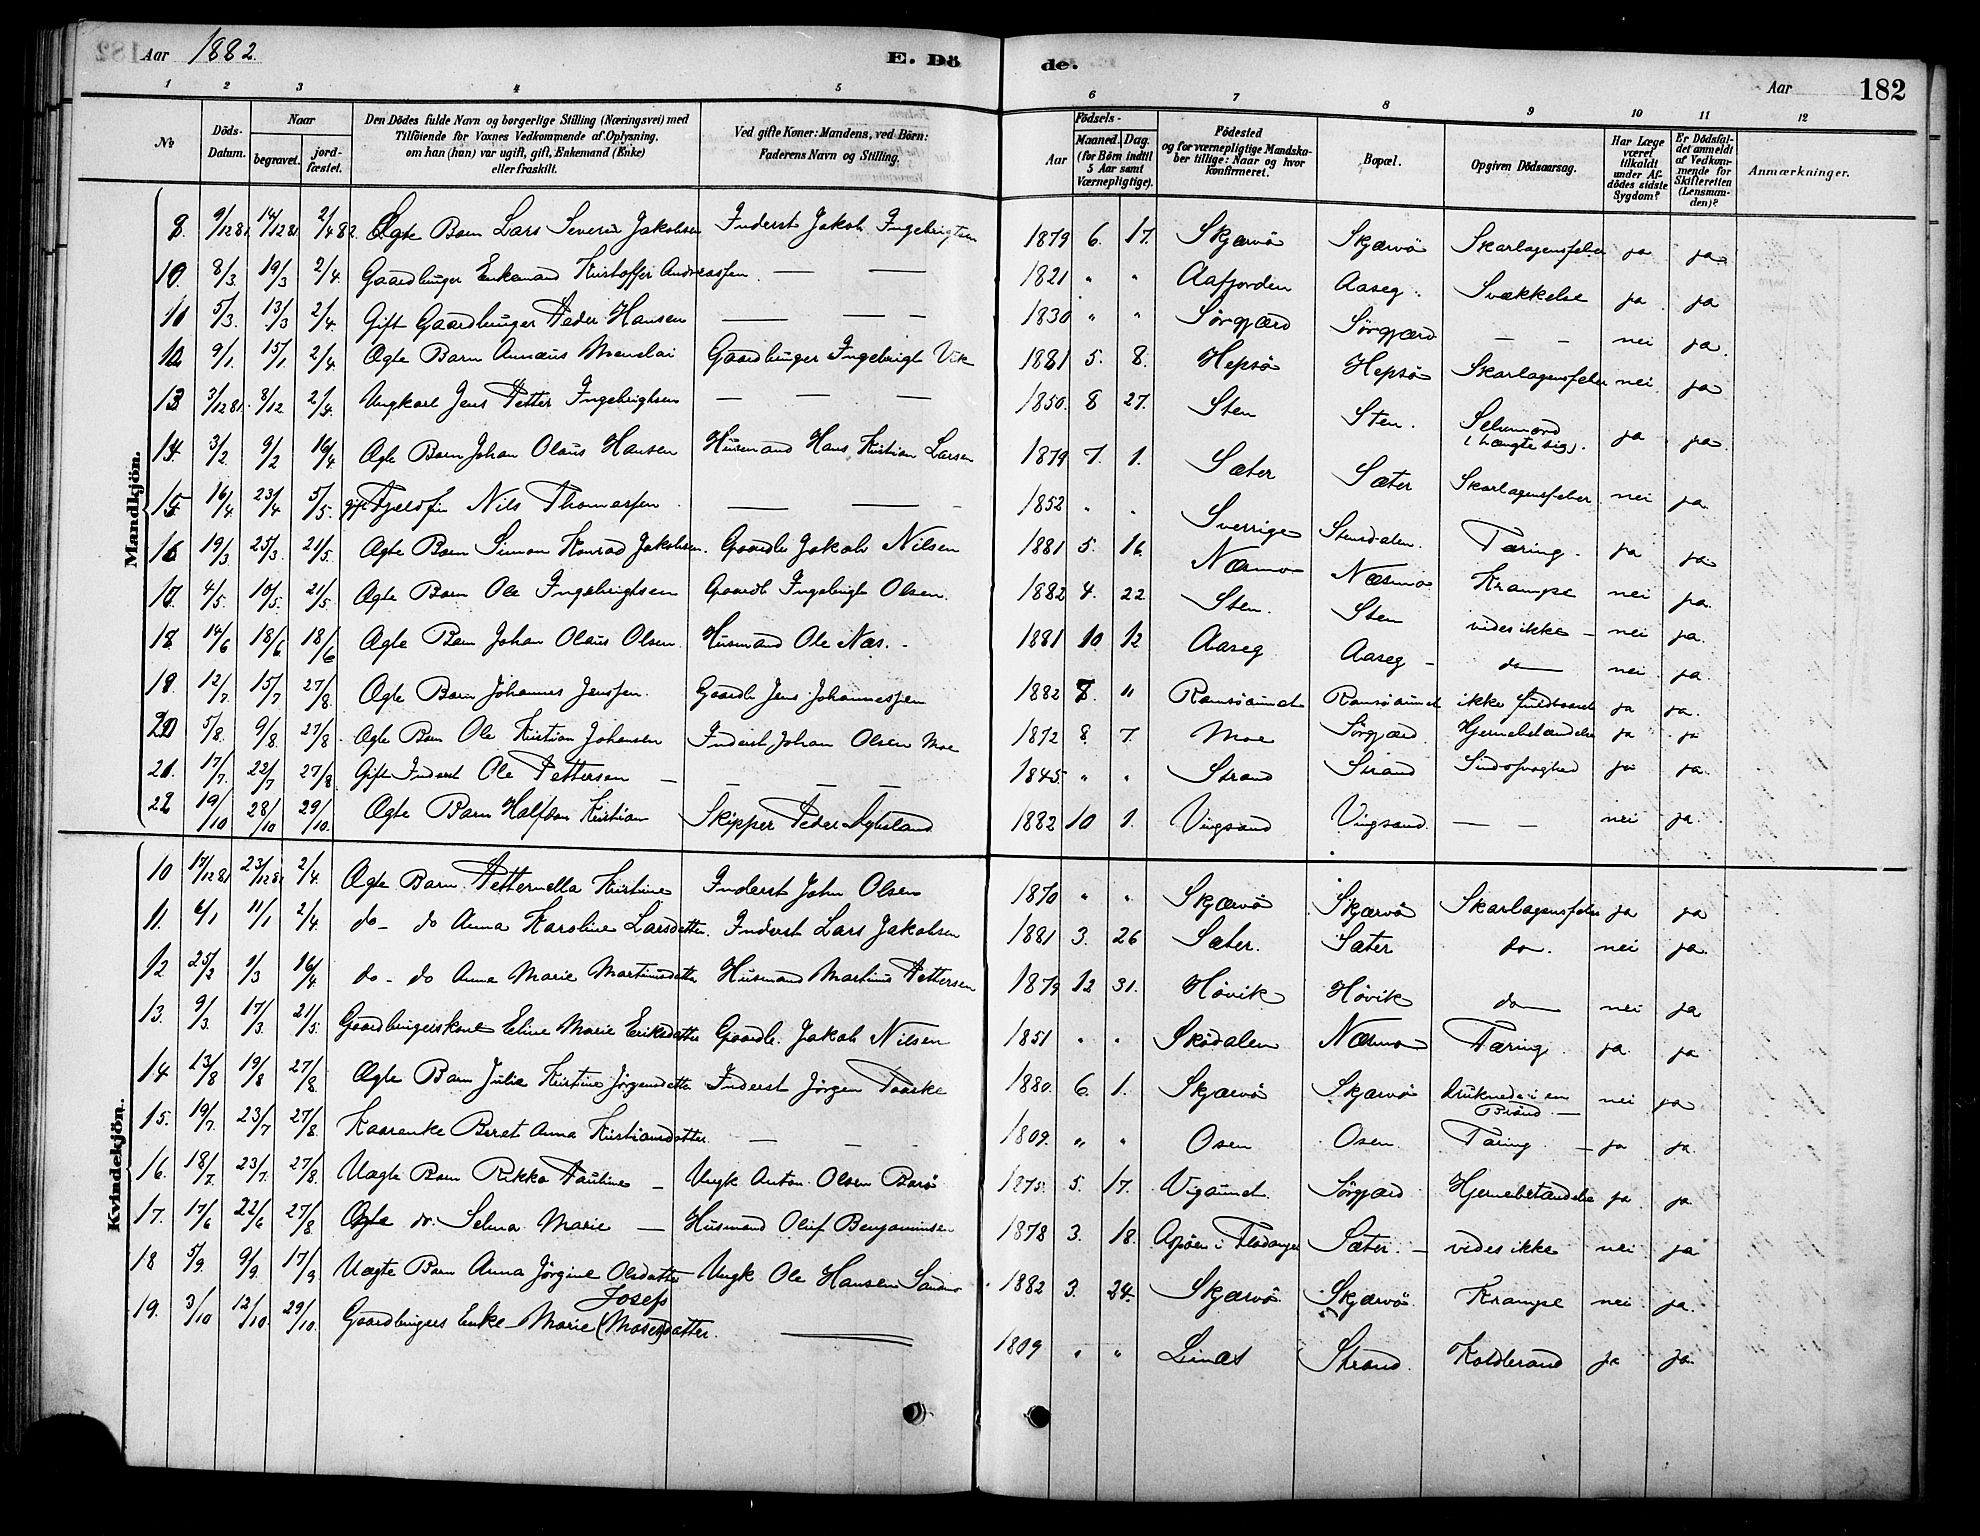 182
Aar 1882.
E. Dö de.
Aar
1 2 3 4 5 6 7 8 9 10 11 12
No
Döds-Datum.
Naar
begravet.
jord-fæstet.
Den Dödes fulde Navn og borgerlige Stilling (Næringsvei) med
Tilföiende for Voxnes Vedkommende af Oplysning,
om han (hun) var ugift, gift, Enkemand (Enke)
eller fraskilt.
Ved gifte Koner: Mandens, ved Börn:
Faderens Navn og Stilling.
Födsels-
Aar
Maaned. Dag.
(for Börn indtil
5 Aar samt
Værnepligtige).
Födested
og for værnepligtige Mandska-
ber tillige: Naar og hvor
konfirmeret.
Bopæl.
Opgiven Dödsaarsag.
Har Læge
været
tilkaldt
under Af-
dödes sidste
Sygdom?
Er Dödsfal-
det anmeldt
af Vedkom-
mende for
Skifteretten
(Lensman-
den)?
Anmærkninger.
Mandkjön.
9. 9/12 81. 14/12 81 2/4 82. Ægte Barn Lars Severin Jakobsen Inderst Jakob Ingebrigtsen 1879 6. 17. Skjærvö Skjærvö Skarlagensfeber ja ja
10. 8/3. 19/3 2/4. Gaardbruger Enkemand Kristoffer Andreassen — — 1821 " " Aafjorden Aaseg. Svækkelse ja ja
11 5/3. 13/3 2/4. Gift Gaardbruger Peder Hansen — — — 1830 " " Sörgjærd Sörgjærd — — nei ja.
12. 9/1. 15/1. 2/4. Ægte Barn Annæus Menelai Gaardbruger Ingebrigt Vik 1881 5. 8. Hepsö Hepsö Skarlagensfeber nei ja
13 3/12 81. 8/12 2/4. Ungkarl Jens Petter Ingebrigtsen — — — 1850. 8 27. Sten Sten. Selvmord (hængte sig). ja ja
14. 3/2. 9/2 16/4 Ægte Barn Johan Olaus Hansen Husmand Hans Kristian Larsen 1879 7. 1. Sæter Sæter Skarlagensfeber nei ja
15 16/4 23/4 5/5. gift Fjeldfin Nils Thomassen — — - 1852 " " Sverrige Stensdalen. Tæring. ja ja
16 19/3 25/3. 21/5. Ægte Barn Simon Konrad Jakobsen. Gaardb. Jakob Nilsen 1881 5. 16. Næsmo Næsmo Krampe nei ja
17. 4/5. 10/5. 21/5. Ægte Barn Ole Ingebrigtsen Gaardb Ingebrigt Olsen. 1882 4. 22 Sten. Sten vides ikke — nei ja.
18. 14/6 18/6. 18/6 Ægte Barn Johan Olaus Olsen Husmand Ole Næs. - 1881 10 12 Aaseg Aaseg - do — nei ja.
19. 12/7. 15/7. 27/8. Ægte Barn Johannes Jenssen. Gaardb Jens Johannessen 1882 7. 11 Ramsösund Ramsösund ikke fuldbaaret ja ja.
20 5/8. 9/8. 27/8. Ægte Barn Ole Kristian Johansen Inderst Johan Olsen Moe 1872 8. 7. Moe Sörgjærd. Hjernebetændelse ja ja
21. 17/7. 22/7 27/8. Gift Inderst Ole Pettersen — — — 1845. " " Strand Strand Sindssvaghed ja ja.
22 19/10 28/10 29/10. Ægte Barn Halfdan Kristian Skipper Peder 1882 10 1. Vingsand Vingsand. — — nei ja.
Kvindekjön.
10 17/12 81 23/12 81 2/4. Ægte Barn Petternella Kristine Inderst John Olsen 1870 " " Skjærvö Skjærvö Skarlagensfeber ja ja
11. 6/1 11/1 2/4. do - do Anna Karoline Larsdatter. Inderst Lars Jakobsen 1881 3. 26 Sæter. Sæter do. nei ja
12 25/2 1/3 16/4 do - do Anna Marie Martinusdatter Husmand Martinus Pettersen 1879 12 31. Hövik Hövik do — nei ja
13. 9/3. 17/3. 21/5. Gaardbrugerskone Eline Marie Eriksdatter Gaardb. Jakob Nilsen 1851 " " Sködalen Næsmo Tæring. ja ja
14 13/8 19/8 27/8. Ægte Barn Julie Kristine Jörgensdatter Inderst Jörgen Paaske 1880. 6. 1. Skjærvö Skjærvö druknede i en Brönd. — nei ja
15. 19/7. 23/7 27/8. Kaarenke Beret Anna Kristiansdatter — — — 1809. " " Osen Osen Tæring. - ja ja
16. 18/7. 23/7. 27/8. Uægte Barn Rikka Pauline — Ungk Anton Olsen Barö 1875. 5. 17. Vigsund. Sörgjærd Hjernebetændelse ja ja
17. 17/6 22/6 27/8. Ægte do. Selma Marie — Husmand Oluf Benjaminsen 1878 3. 18. i Fladanger Sæter. - vides ikke nei ja
18 5/9. 9/9. 17/9 Uægte Barn Anna Jörgine Olsdatter Ungk Ole Hansen 1882 3. 24. Skjærvö Skjærvö. Krampe nei ja.
Josefs
19. 3/10 12/10. 29/10. Gaardbrugers Enke Marie (Moses)datter. — 1809 " " Strand. Koldbrand ja ja